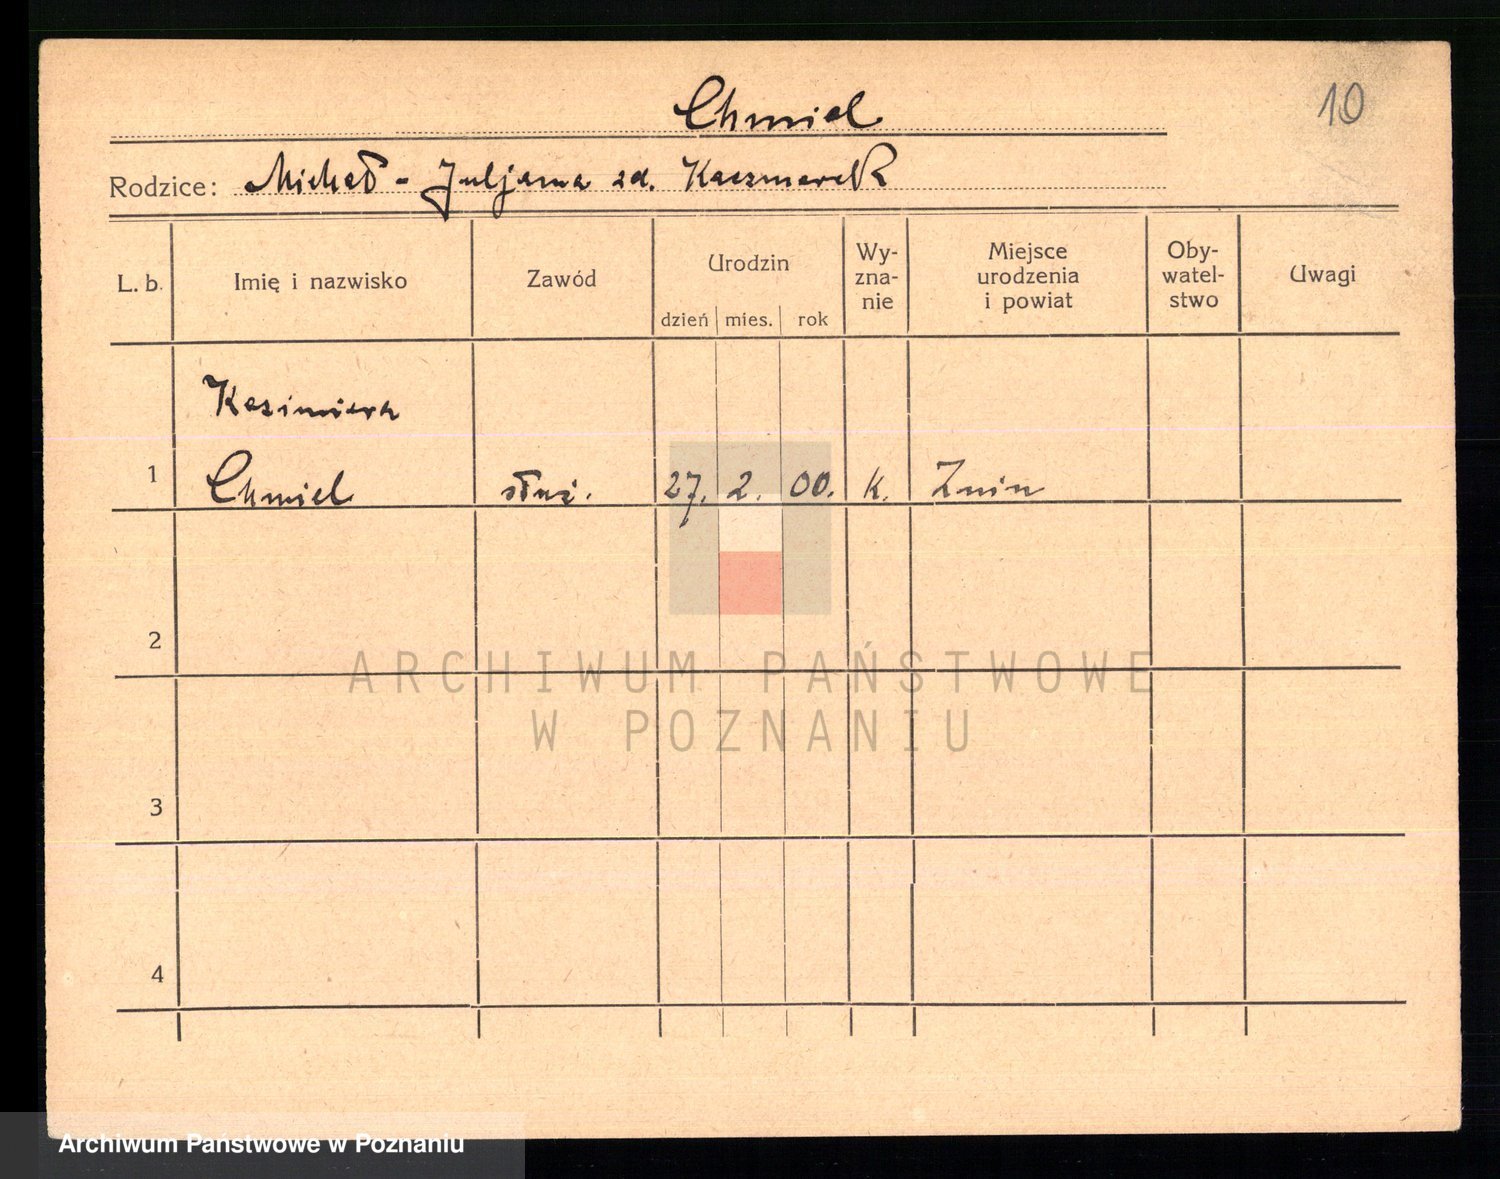 Chmiel
10
Rodzice: Michał - Juljana zd. Kaczmarek
L. b. Imię i nazwisko Zawód Urodzin dzień mies. rok Wy-zna-nie Miejsce urodzenia i powiat Oby-watel-stwo Uwagi
Kazimiera
1 Chmiel służ. 27. 2. 00. k. Żnin
2
ARCHIWUM PAŃSTWOWE
W POZNANIU
3
4
Archiwum Państwowe w Poznaniu